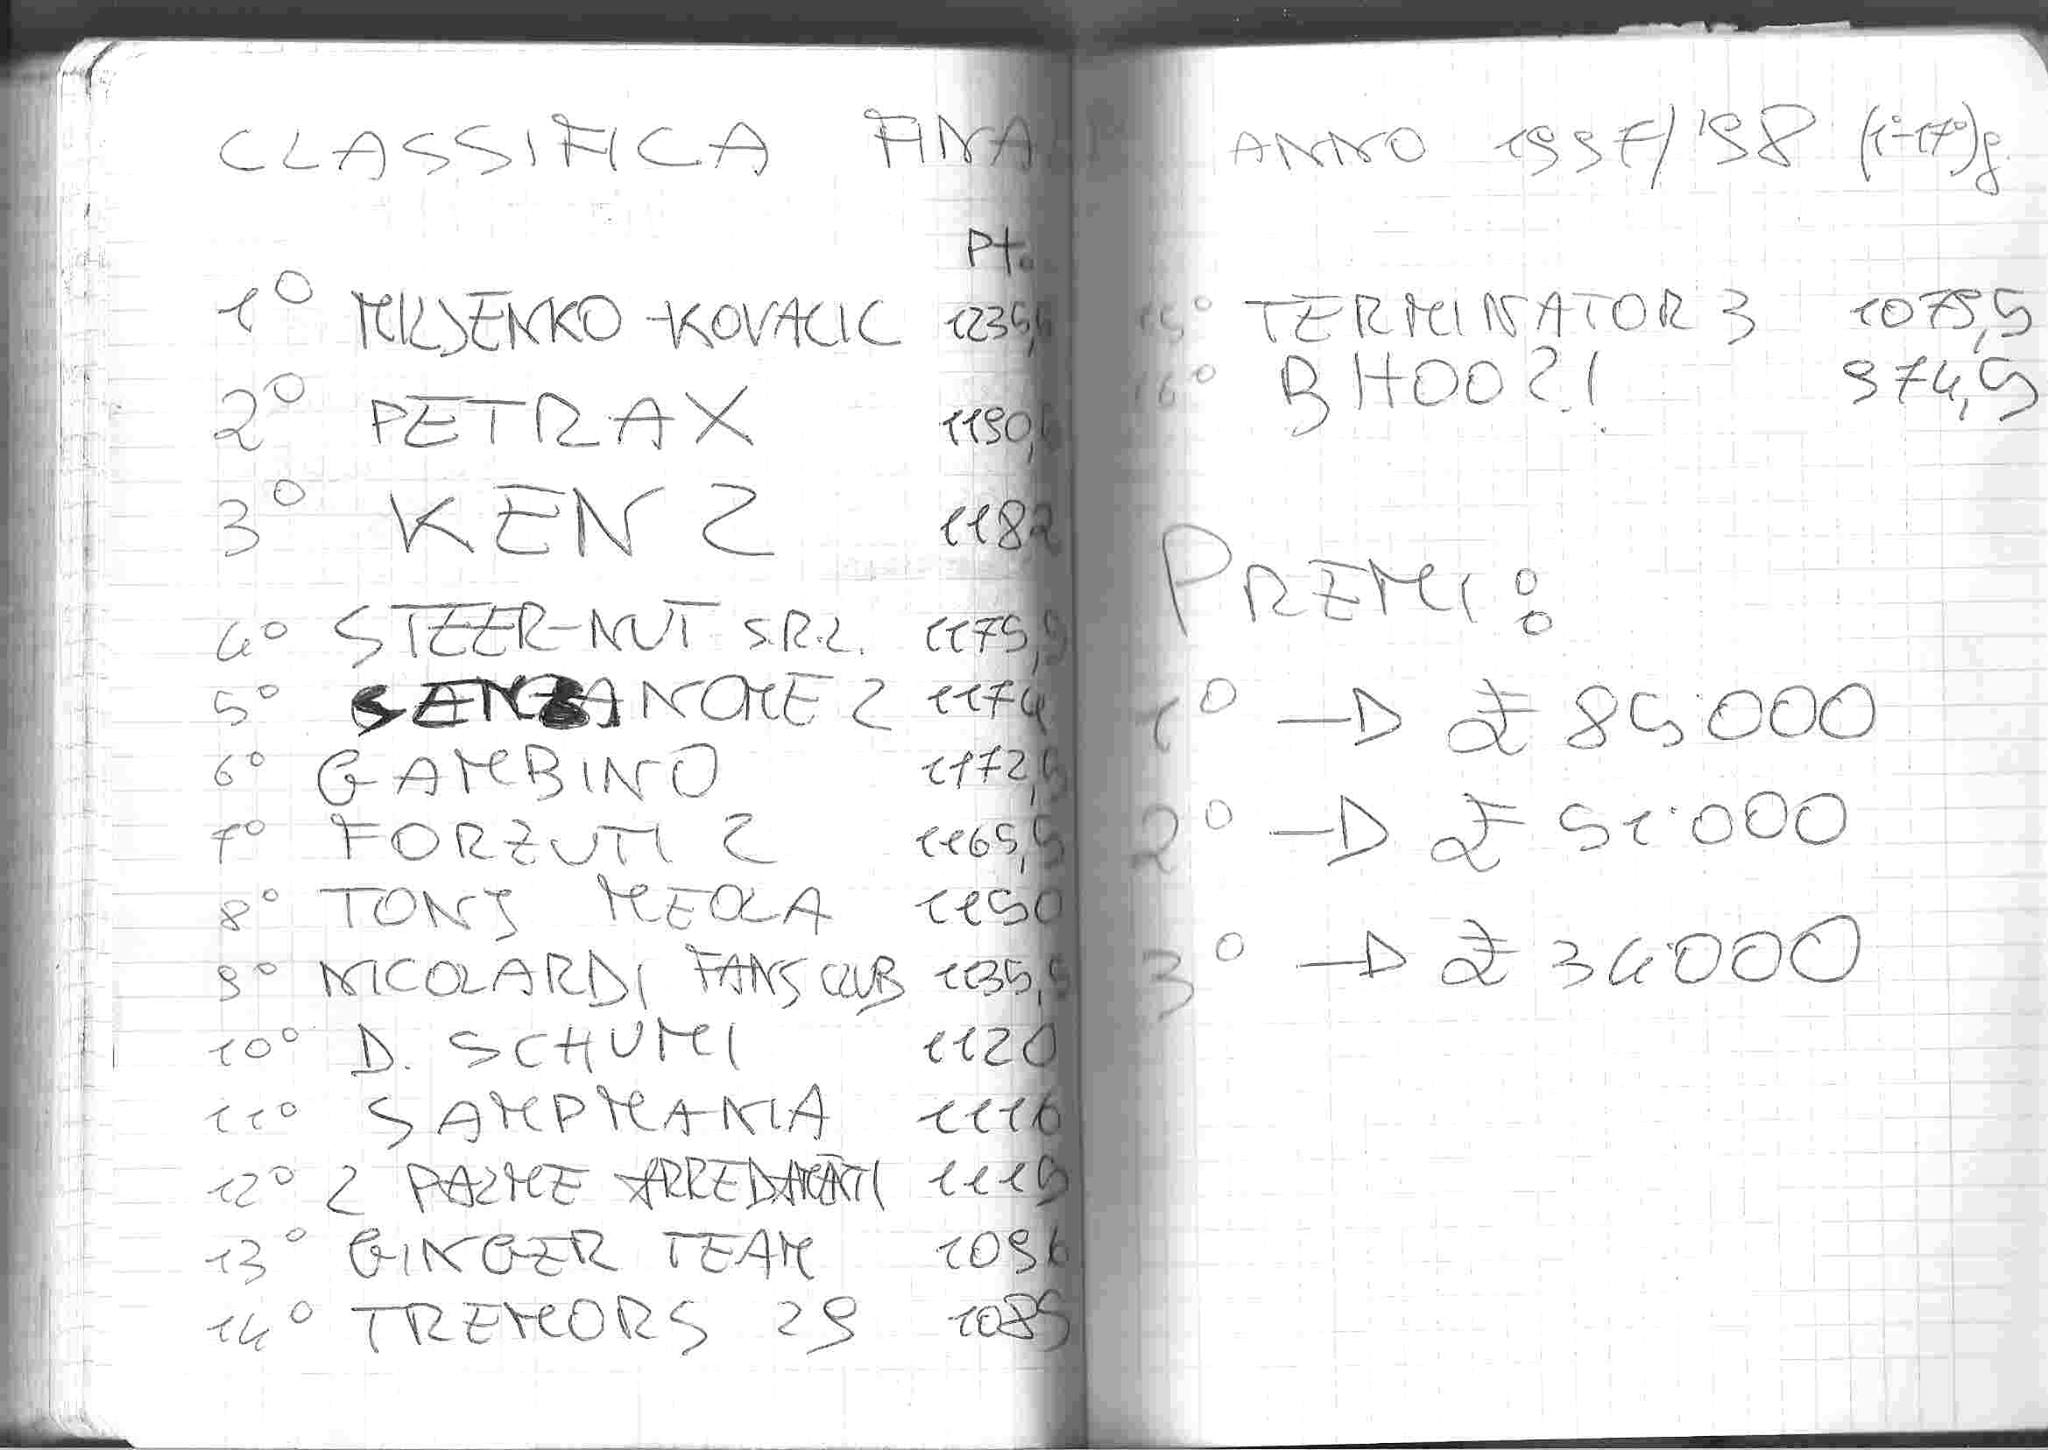 CLASSIFICA FINA
Pt.
1° MILJENKO-KOVACIC 1235,5
2° PETRAX 1190,
3° KEN 2 1182
4° STEER-NUT S.R.L. 1175,5
5° SENZANOME 2 1174
6° GAMBINO 1172,5
7° FORZUTI 2 1165,5
8° TONJ MEOLA 1150
9° NICOLARDI FANS CLUB 1135,5
10° D. SCHUMI 1120
11° SAMPMANIA 1116
12° 2 PALME ARREDAMENTI 1115
13° GINGER TEAM 1096
14° TREMORS 29 1085
ANNO 1997/'98 (1°-17°)g.
15° TERMINATOR 3 1075,5
16° BHOO?! 974,5
PREMI:
1° → £ 85.000
2° → £ 51.000
3° → £ 34.000